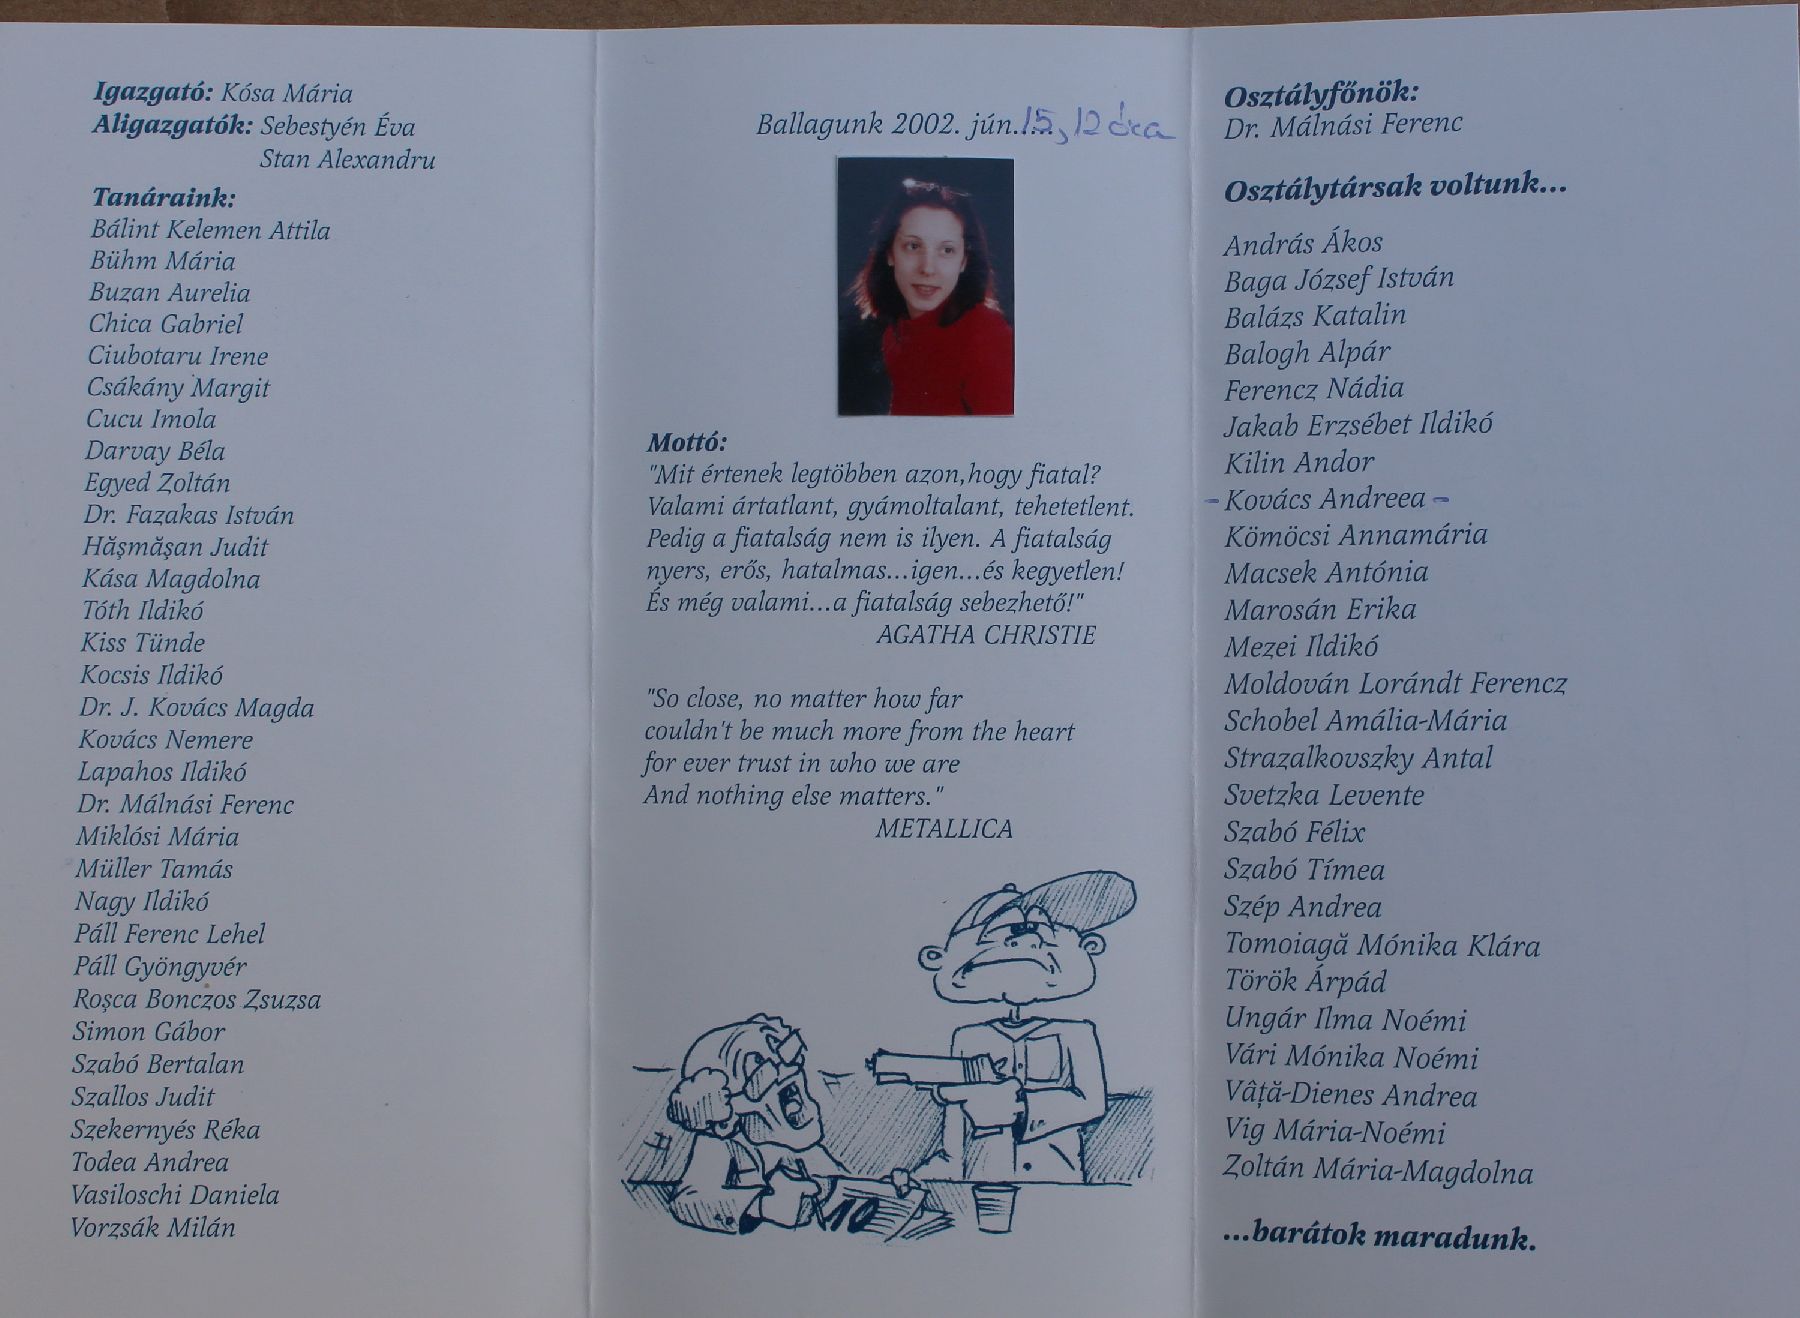 Igazgató: Kósa Mária
Aligazgatók: Sebestyén Éva
Stan Alexandru
Tanáraink:
Bálint Kelemen Attila
Bühm Mária
Buzan Aurelia
Chica Gabriel
Ciubotaru Irene
Csákány Margit
Cucu Imola
Darvay Béla
Egyed Zoltán
Dr. Fazakas István
Hășmășan Judit
Kása Magdolna
Tóth Ildikó
Kiss Tünde
Kocsis Ildikó
Dr. J. Kovács Magda
Kovács Nemere
Lapahos Ildikó
Dr. Málnási Ferenc
Miklósi Mária
Müller Tamás
Nagy Ildikó
Páll Ferenc Lehel
Páll Gyöngyvér
Roșca Bonczos Zsuzsa
Simon Gábor
Szabó Bertalan
Szallos Judit
Szekernyés Réka
Todea Andrea
Vasiloschi Daniela
Vorzsák Milán
Ballagunk 2002. jún. 15, 12 óra
Mottó:
"Mit értenek legtöbben azon,hogy fiatal?
Valami ártatlant, gyámoltalant, tehetetlent.
Pedig a fiatalság nem is ilyen. A fiatalság
nyers, erős, hatalmas...igen...és kegyetlen!
És még valami...a fiatalság sebezhető!"
AGATHA CHRISTIE
"So close, no matter how far
couldn't be much more from the heart
for ever trust in who we are
And nothing else matters."
METALLICA
10
Osztályfőnök:
Dr. Málnási Ferenc
Osztálytársak voltunk...
András Ákos
Baga József István
Balázs Katalin
Balogh Alpár
Ferencz Nádia
Jakab Erzsébet Ildikó
Kilin Andor
- Kovács Andreea -
Kömöcsi Annamária
Macsek Antónia
Marosán Erika
Mezei Ildikó
Moldován Lorándt Ferencz
Schobel Amália-Mária
Strazalkovszky Antal
Svetzka Levente
Szabó Félix
Szabó Tímea
Szép Andrea
Tomoiagă Mónika Klára
Török Árpád
Ungár Ilma Noémi
Vári Mónika Noémi
Vâță-Dienes Andrea
Vig Mária-Noémi
Zoltán Mária-Magdolna
...barátok maradunk.